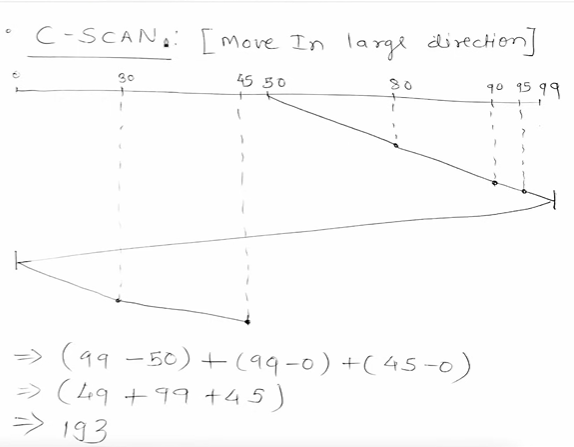 C-SCAN: [Move In large direction]
0 30 45 50 80 90 95 99
⇒ (99 - 50) + (99-0) + (45-0)
⇒ (49 + 99 + 45)
⇒ 193